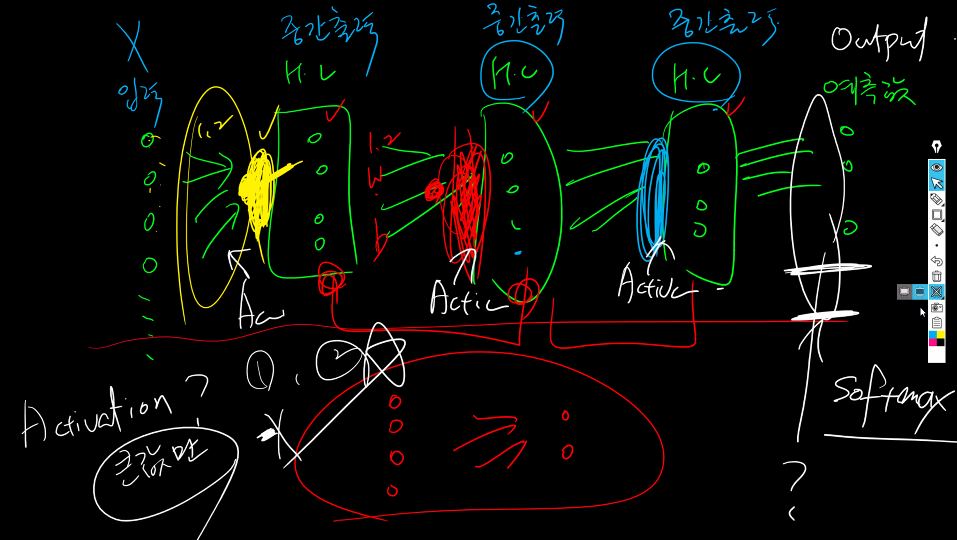 X
입력
중간출력
H.L
중간출력
H.L
중간출력
H.L
Output
예측값
1,2
1,2
W
b
Ac
Activ
Active
Activation ?
①, ②
X
큰값만
Softmax
?